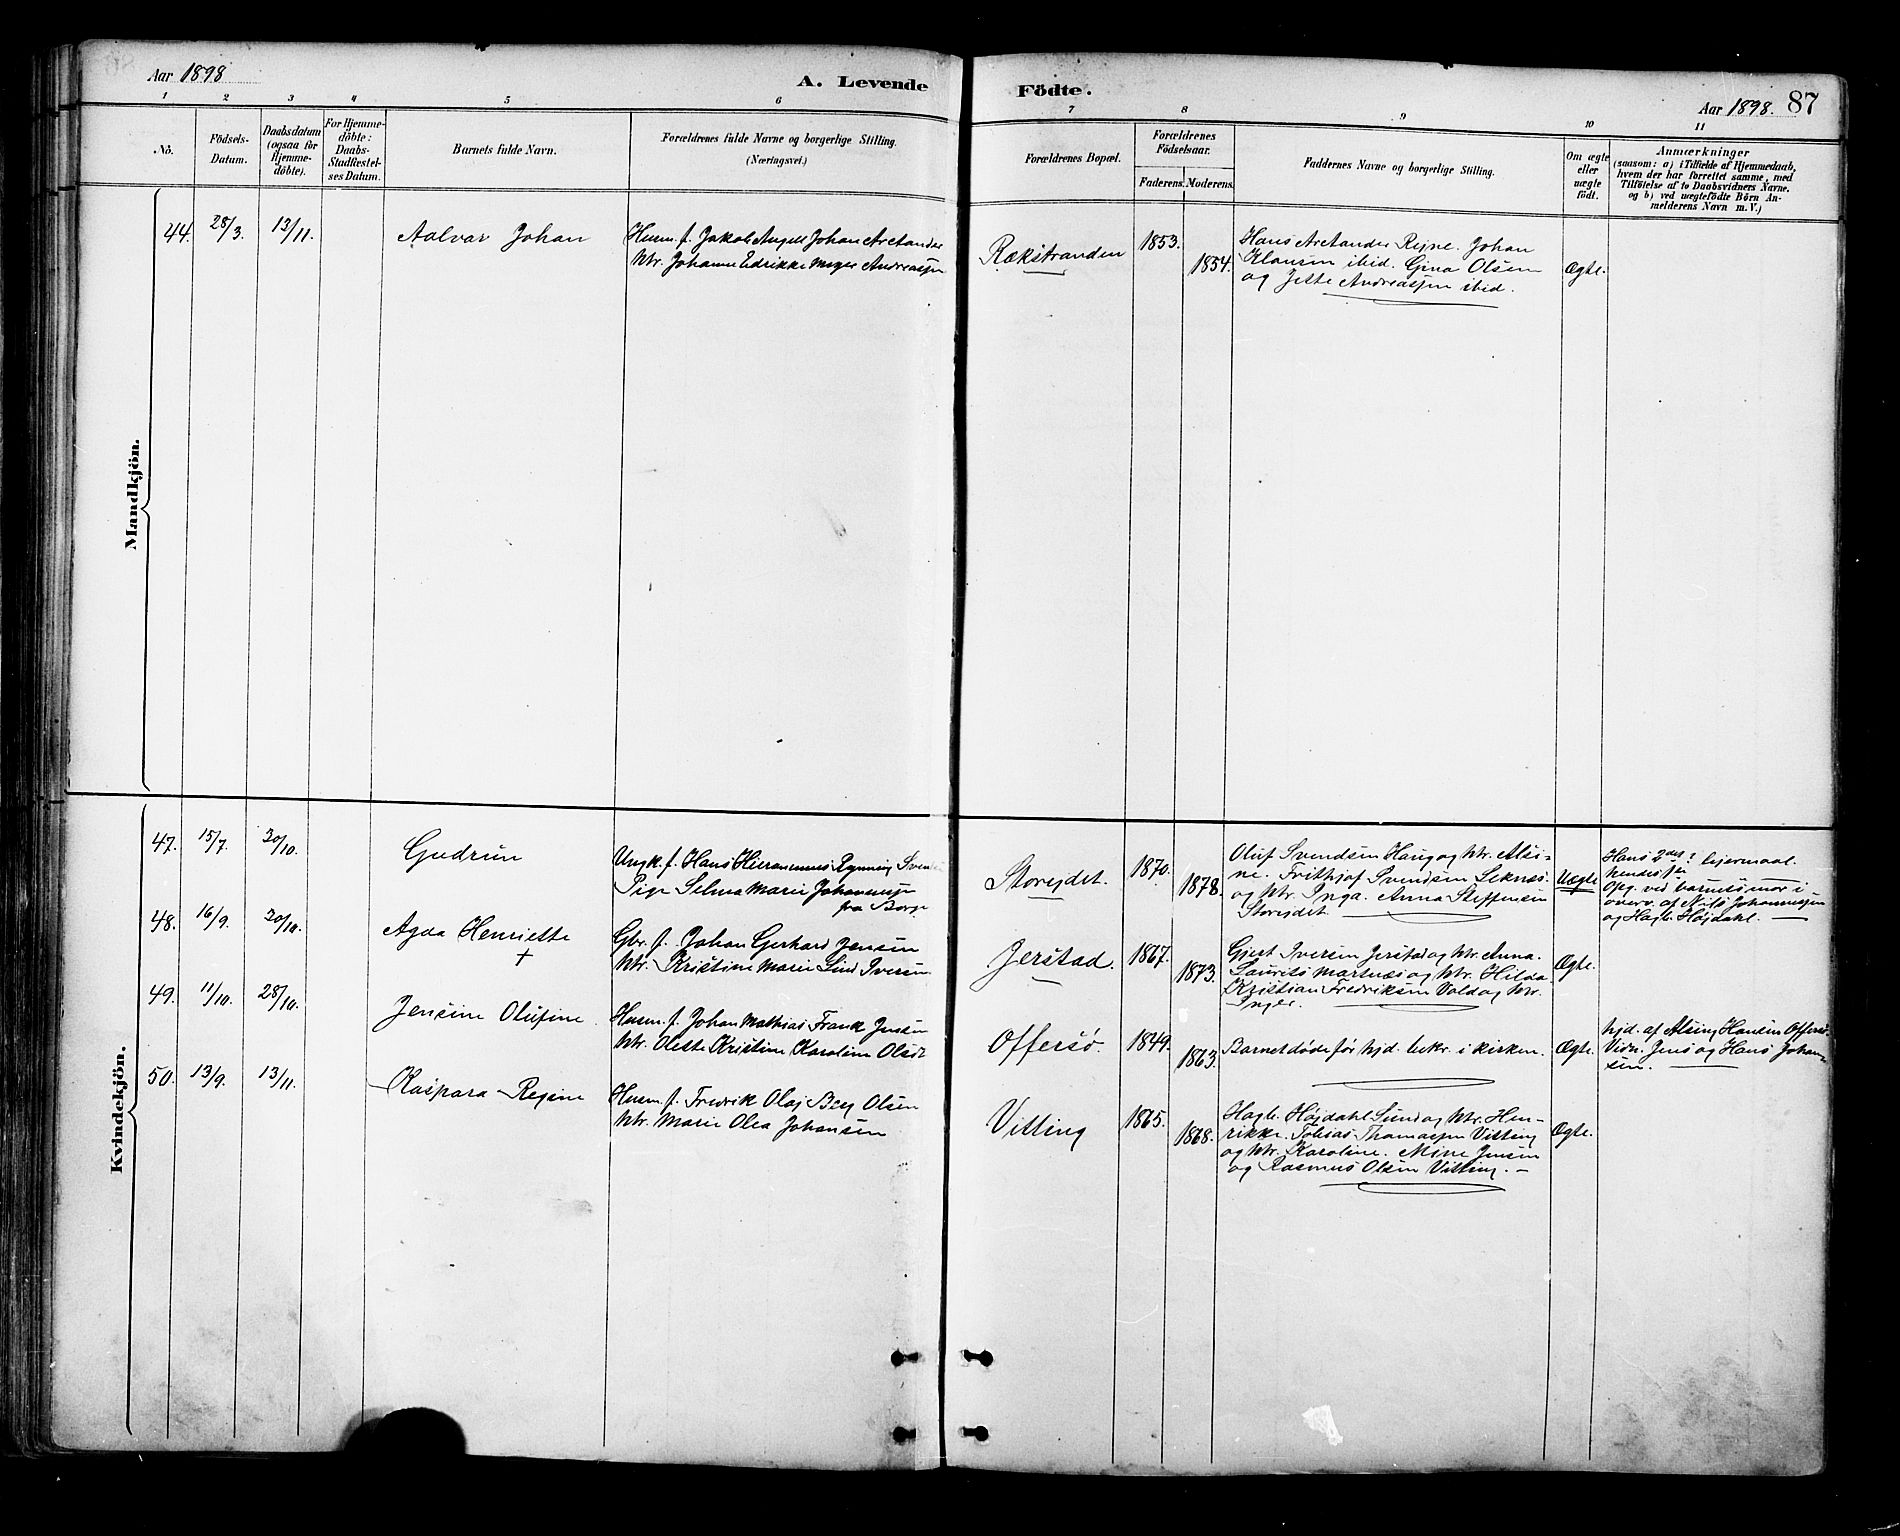 Aar 1898
A. Levende
Födte.
Aar 1898. 87
1 2 3 4 5 6 7 8 9 10 11
Nô.
Födsels-
Datum.
Daabsdatum
(ogsaa for
Hjemme-
döbte).
For Hjemme-
döbte:
Daabs-
Stadfæstel-
ses Datum.
Barnets fulde Navn.
Forældrenes fulde Navne og borgerlige Stilling.
(Næringsvei.)
Forældrenes Bopæl.
Forældrenes
Födselsaar.
Faderens. Moderens.
Faddernes Navne og borgerlige Stilling.
Om ægte
eller
uægte
födt.
Anmærkninger
(saasom: a) i Tilfælde af Hjemmedaab,
hvem der har forrettet samme, med
Tilföielse af to Daabsvidners Navne.
og b) ved uægtefödte Börn An-
melderens Navn m. V.)
Mandkjön.
44. 28/3. 13/11.
Aalvar Johan
Husm. f. Jakob Angell Johan Arctander
Htr. Johanna Edrikke Meyer Andreassen
Rækstranden
1853.
1854.
Hans Arctander Reine. Johan
Klausen ibid. Gina Olsen
og Jette Andreassen ibid.
Ægte.
Kvindekjön.
47. 15/7. 30/10.
Gudrun
Ungk. f. Hans Hieronimus Rynning Svend
Pige Selma Marie Johannesse
fra Borge
Storeidet.
1870.
1878.
Oluf Svendsen Haug og Htr. Alsi-
ne. Frithjof Svendsen Leknes
og Htr. Inga. Anna Steffensen
Storeidet
Uægte
Hans 2det? leiermaal.
hendes 1ste
Opg. ved barnets mor i
overv. af Nils Johannessen
og Hagb. Højdahl.
48. 16/9. 30/10.
Agda Henriette
+
Gbr. f. Johan Gerhard Jensen
Htr. Kristine Marie Lind Iversen
Jerstad.
1867.
1873.
Gjert Iversen Jerstad og Htr. Anna.
Laurits Martnæs og Htr. Hilda
Kristian Fredriksen Vold og Htr.
Inger.
Ægte.
49. 11/10. 28/10.
Jensine Olufine
Husm. f. Johan Mathias Frank Jensen
Htr. Olette Kristine Karoline Olsdt
Offersø.
1849.
1863.
Barnet døde før hjd. bekr. i kirken.
Ægte.
hjd. af Alsing Hansen Offersø.
Vidn. Jens og Hans Johan-
sen.
50. 13/9. 13/11.
Kaspara Regine
Husm. f. Fredrik Olaj Berg Olsen
Htr. Marie Olea Johansen
Vitting
1865.
1868.
Hagb. Højdahl Sund og Htr. Hen-
rikke. Tobias Thomassen Vitting
og Htr. Karoline. Mine Jensen
og Rasmus Olsen Vitting.
Ægte.